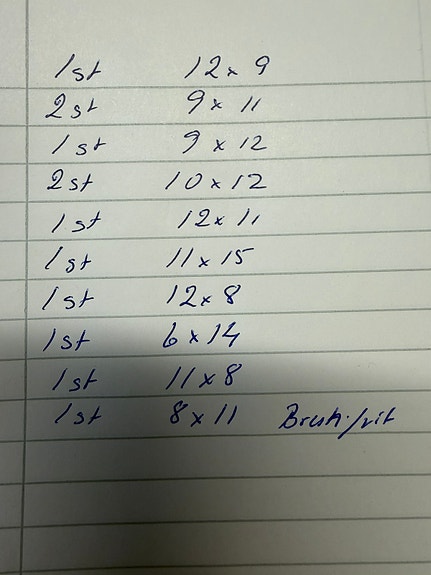 1st 12x9
2st 9x11
1st 9x12
2st 10x12
1st 12x11
1st 11x15
1st 12x8
1st 6x14
1st 11x8
1st 8x11